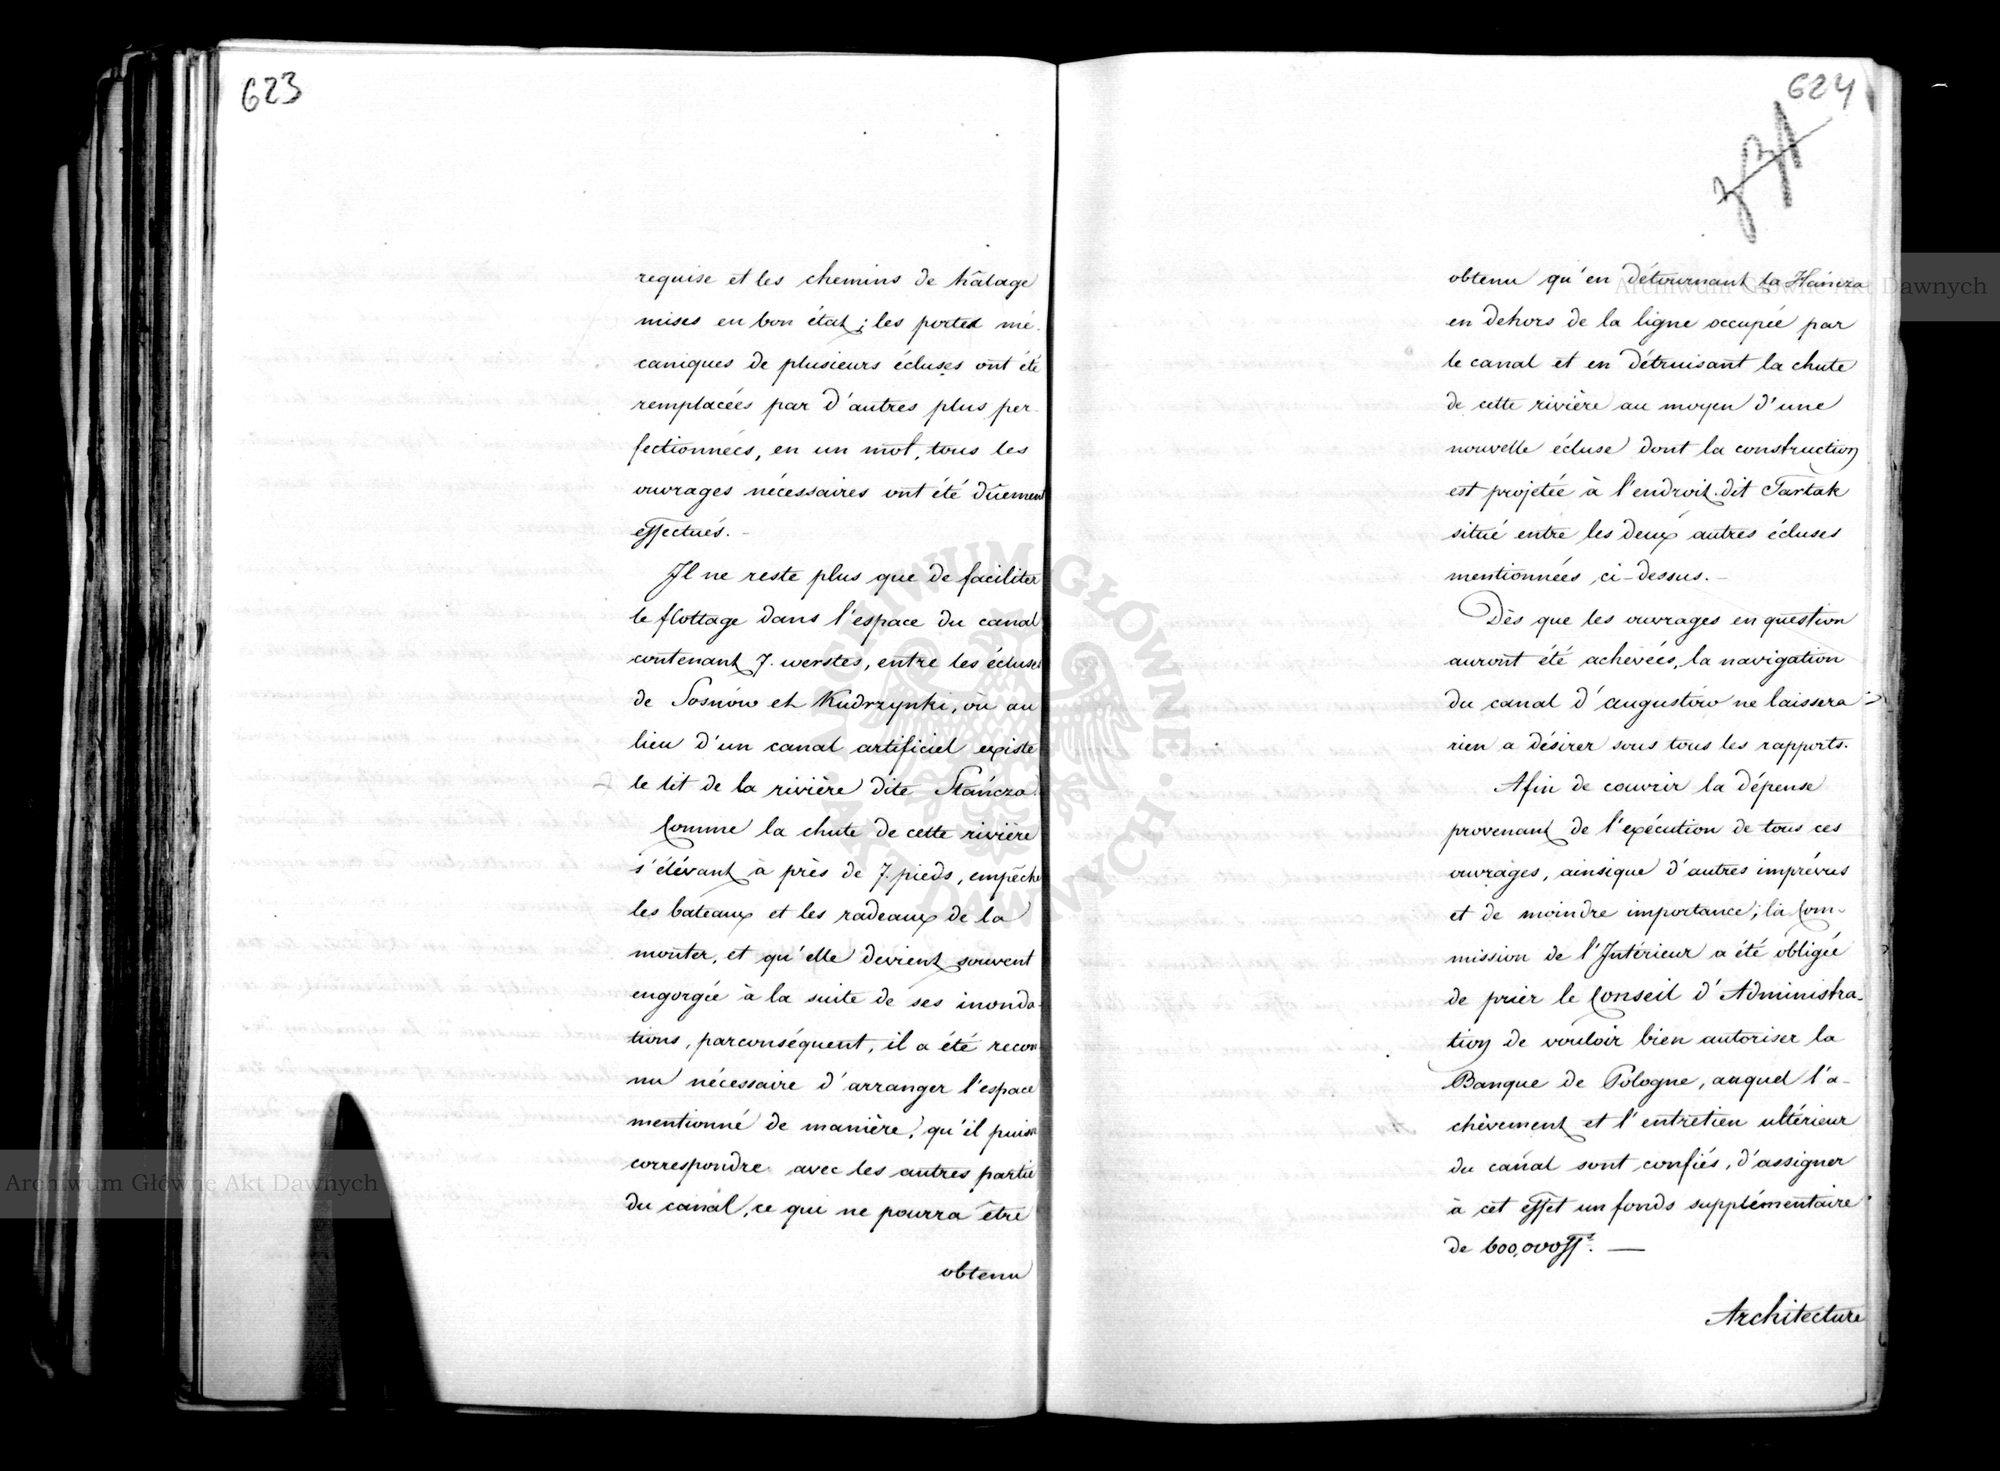 623
requise et les chemins de hâlage
mises en bon état; les portes mé-
caniques de plusieurs écluses ont été
remplacées par d'autres plus per-
fectionnées, en un mot, tous les
ouvrages nécessaires ont été dûement
effectués. -
Il ne reste plus que de faciliter
le flottage dans l'espace du canal
contenant 7. werstes, entre les écluses
de Sosnów et Kudrzynki, où au
lieu d'un canal artificiel existe
le lit de la rivière dite Hańcza.
Comme la chute de cette rivière
s'élévant à près de 7. pieds, empêche
les bateaux et les radeaux de la
monter, et qu'elle devient souvent
engorgée à la suite de ses inonda-
tions, parconséquent, il a été recon-
nu nécessaire d'arranger l'espace
mentionné de manière, qu'il puisse
correspondre avec les autres partie
du canal, ce qui ne pourra être
obtenu
624
obtenu qu'en détournant la Hańcza
en dehors de la ligne occupée par
le canal et en détruisant la chute
de cette rivière au moyen d'une
nouvelle écluse dont la construction
est projetée à l'endroit dit Tartak
situé entre les deux autres écluses
mentionnées ci-dessus. -
Dès que les ouvrages en question
auront été achevées, la navigation
du canal d'augustów ne laissera
rien a désirer sous tous les rapports.
Afin de couvrir la dépense
provenant de l'exécution de tous ces
ouvrages, ainsique d'autres imprévus
et de moindre importance; la Com-
mission de l'Intérieur a été obligée
de prier le Conseil d'Administra-
tion de vouloir bien autoriser la
Banque de Pologne, auquel l'a-
chèvement et l'entretien ultérieur
du canal sont confiés, d'assigner
à cet effet un fonds supplémentaire
de 600,000 ff<sup>s</sup>. —
Architecture
Archiwum Główne Akt Dawnych
Archiwum Główne Akt Dawnych
ARCHIWUM GŁÓWNE · AKT DAWNYCH ·